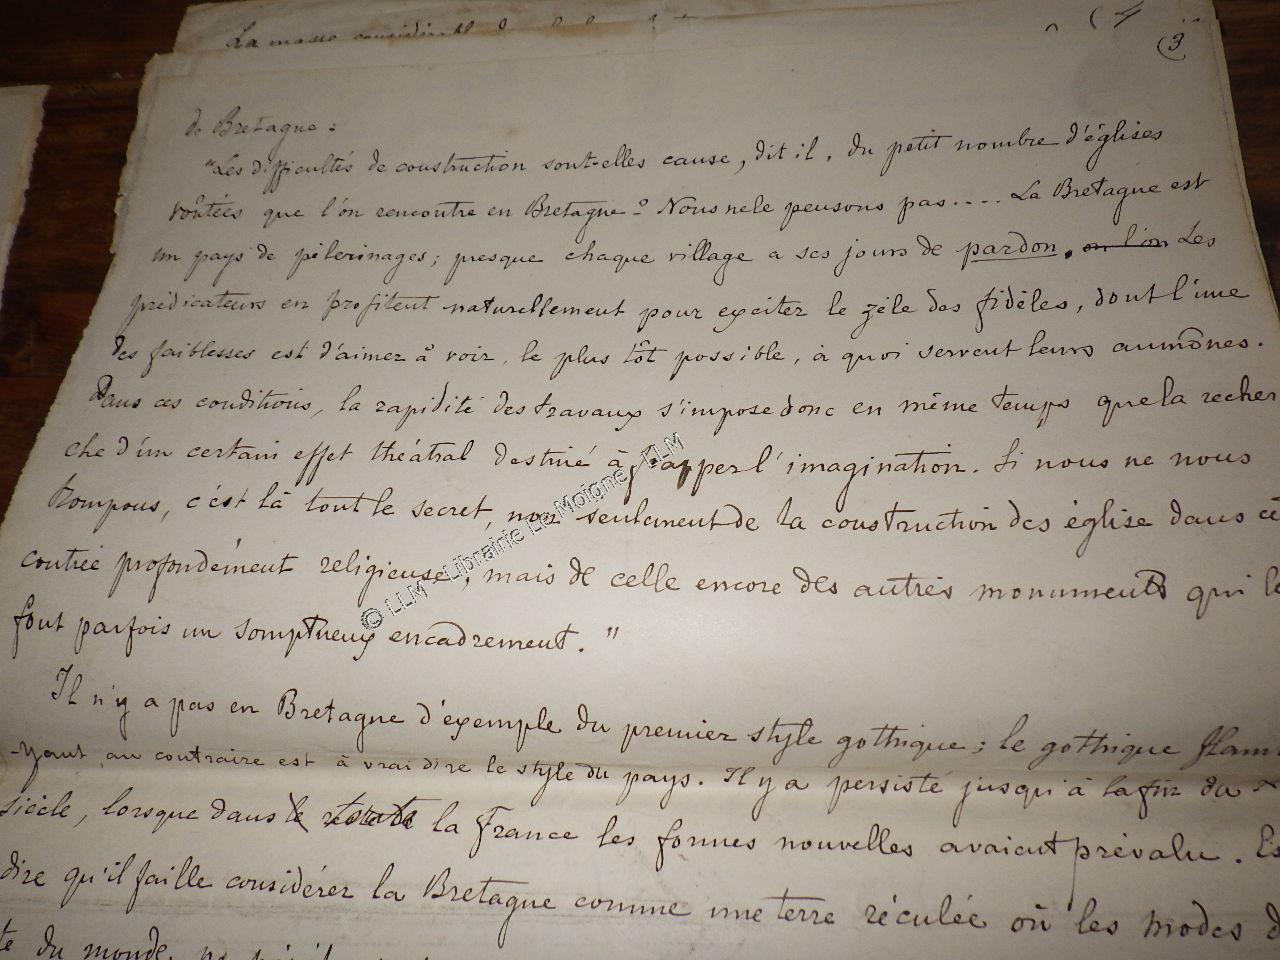 La masse considérable
(4
(3
de Bretagne :
"Les difficultés de construction sont-elles cause, dit il, du petit nombre d'églises
voûtées que l'on rencontre en Bretagne ? Nous ne le pensons pas.... La Bretagne est
un pays de pèlerinages ; presque chaque village a ses jours de pardon. ou l'on Les
prédicateurs en profitent naturellement pour exciter le zèle des fidèles, dont l'une
des faiblesses est d'aimer à voir, le plus tôt possible, à quoi servent leurs aumônes.
Dans ces conditions, la rapidité des travaux s'impose donc en même temps que la recher
che d'un certain effet théatral destiné à frapper l'imagination. Si nous ne nous
trompons, c'est là tout le secret, non seulement de la construction des église dans ce
contrée profondément religieuse, mais de celle encore des autres monuments qui le
font parfois un somptueux encadrement."
Il n'y a pas en Bretagne d'exemple du premier style gothique ; le gothique flam
-yant, au contraire est à vrai dire le style du pays. Il y a persisté jusqu'à la fin du
siècle, lorsque dans le la France les formes nouvelles avaient prévalu. Es
dire qu'il faille considérer la Bretagne comme une terre réculée où les modes d
te du monde,
© LLM - Librairie Le Moigne - LLM